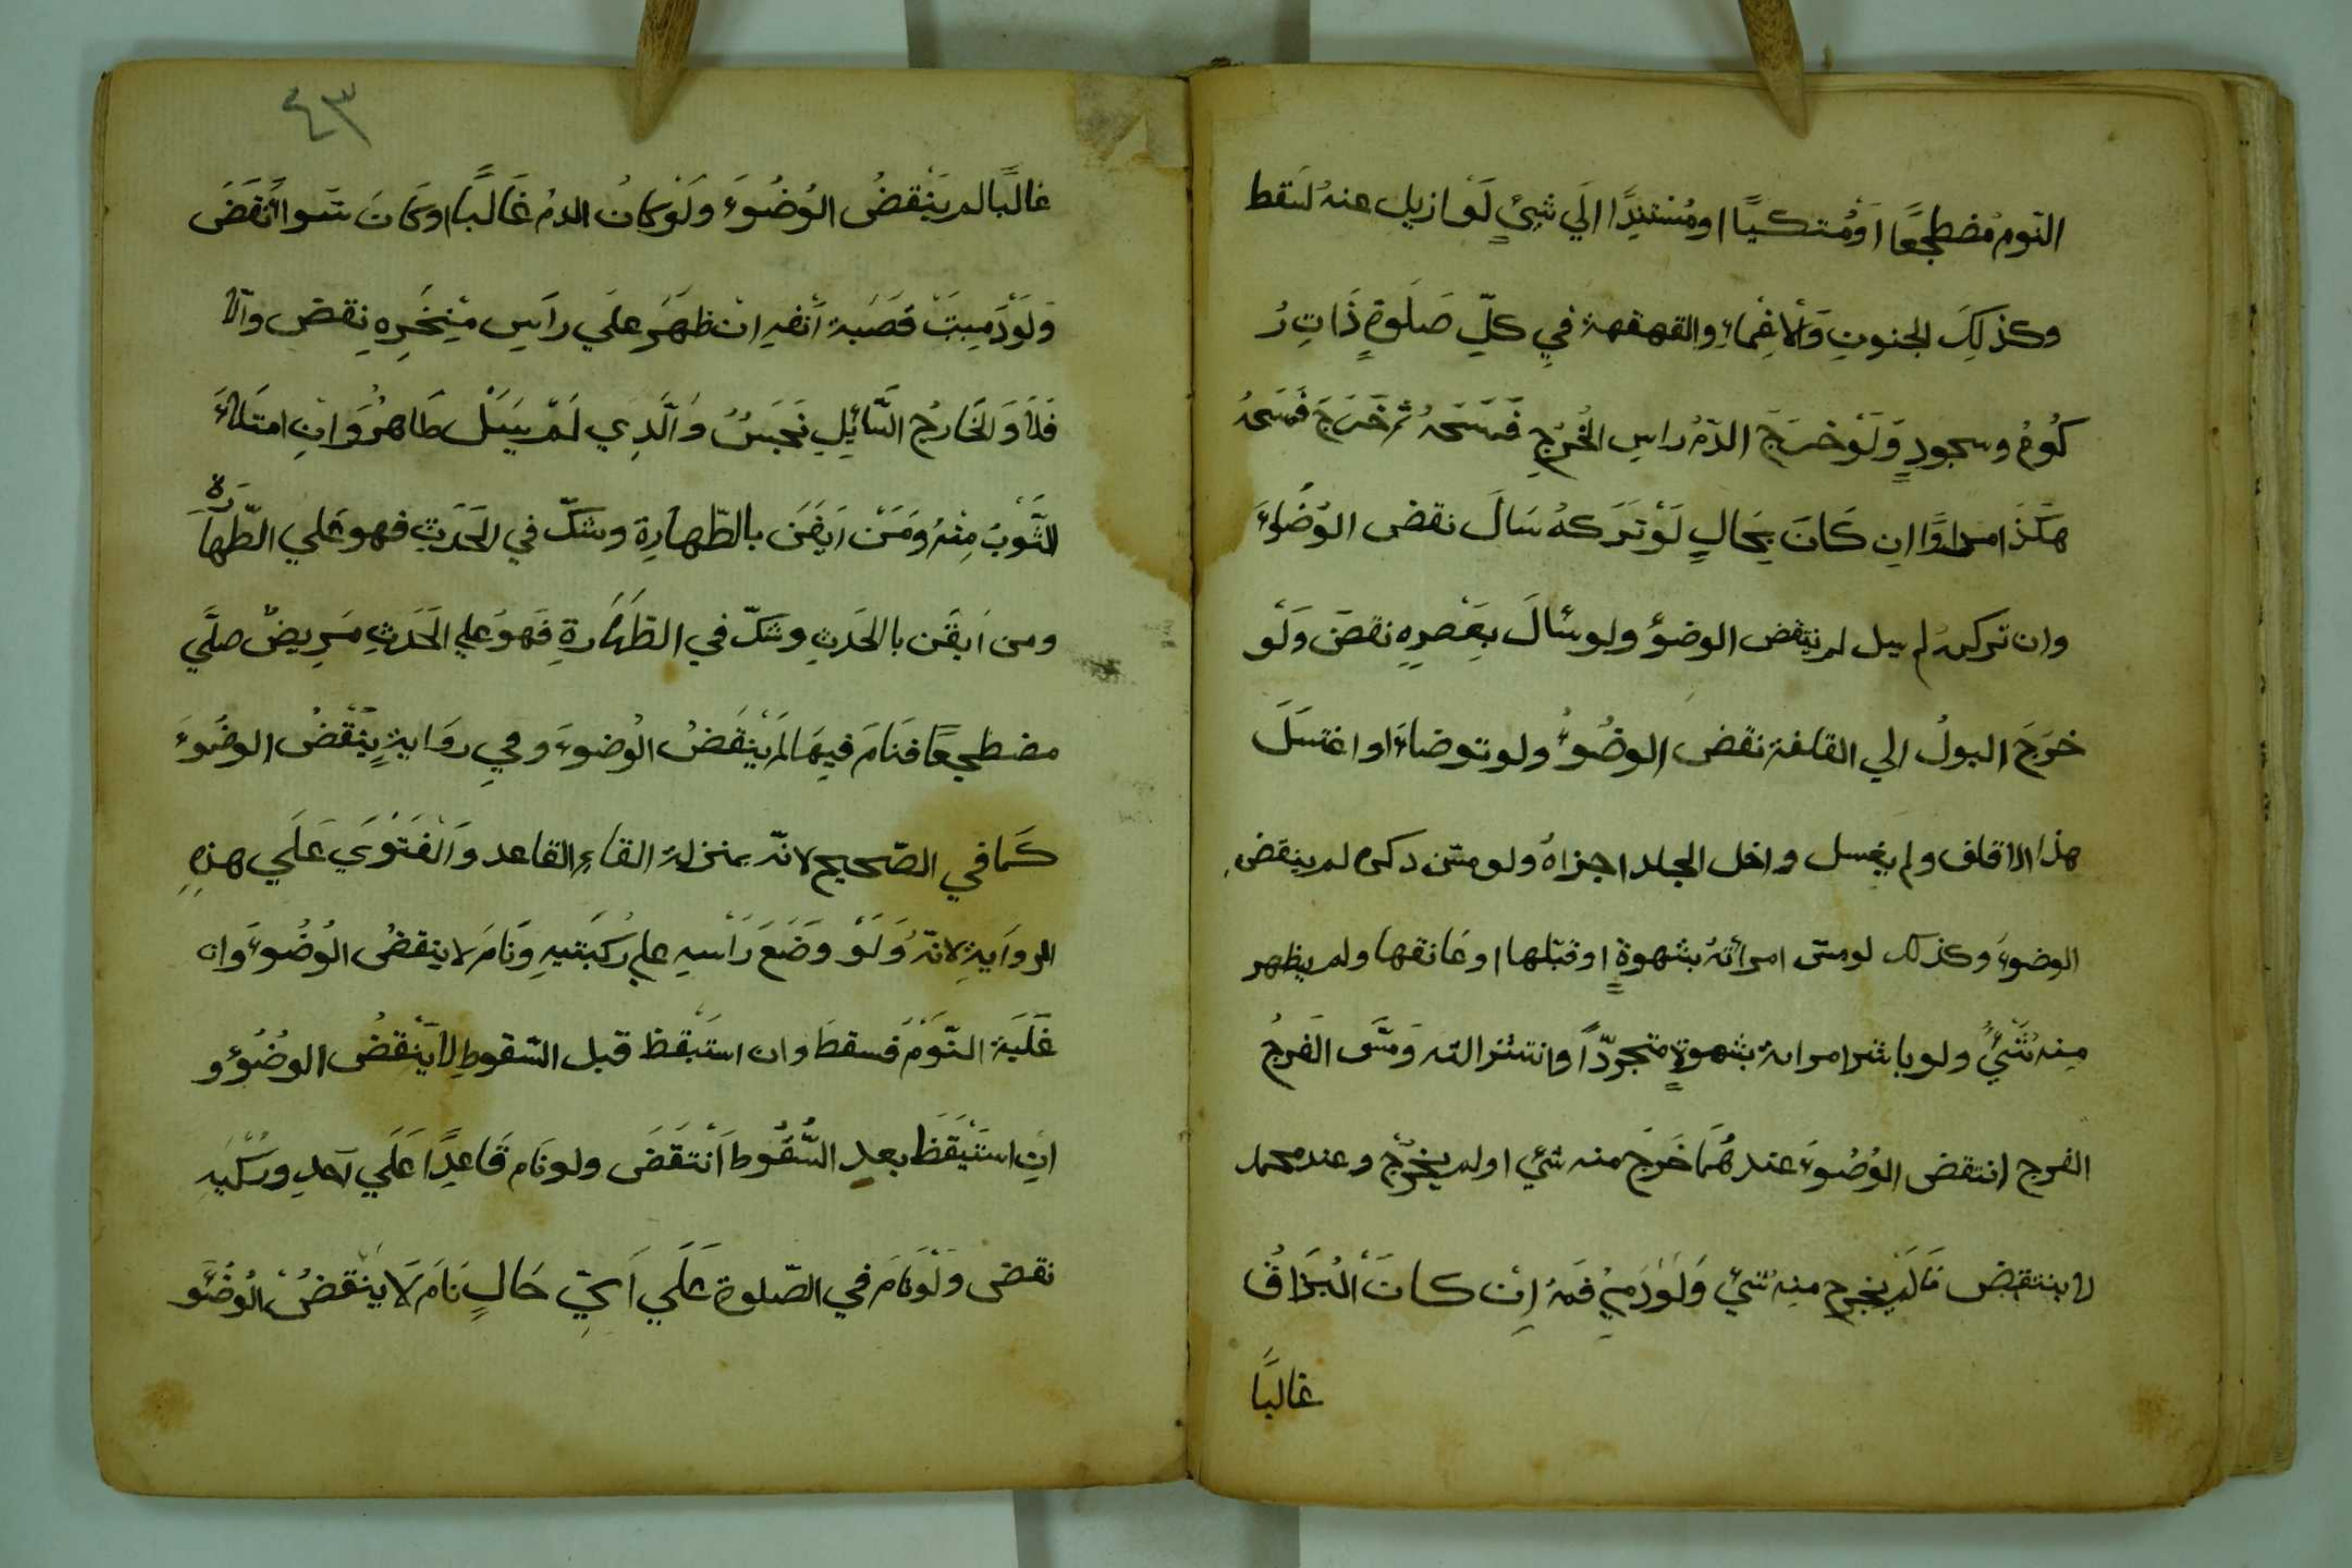 النّومُ مُضطجعًا اَوْمُتكيًا اومُسْتنِدًا اِلَي شيْئٍ لَوْ ازيل عنهُ لَسَقط
وكذلِكَ الجنونِ وَالْاِغْماءِ والقهقهة في كلِّ صَلَوةٍ ذَاتِ رُ
كُوعٍ وسجودٍ وَلَوْ خرَجَ الدّمُ راسِ الْخُرجِ فَمَسَحَهُ ثم خَرَجَ فَمَسَحهُ
هكَذَا مرارًا اِن كَانَ بِحَالٍ لَوْ تَرَكهُ سَالَ نقض الوُضُوءَ
وان تركهُ لم يسل لم ينتقض الوضوءُ ولو سالَ بِعَصرِهِ نقضَ وَلَو
خرَجَ البولُ الي القلفة نقض الوضُوءُ ولو توضاءَ او اغتسَلَ
هذا الاقلف ولم يغسل داخل الجلد اجزاهُ ولو مسّ ذكره لم ينقض
الوضوءَ وكذلك لو مسّ امرأتهُ بشهوةٍ اوقبّلها اوعَانقها ولم يظهر
مِنهُ شَئٌ ولو باشر امراة بشهوةٍ متجردًّا وانتشر التہ وَمسَّ الفَرجُ
الفرج انتقض الوُضُوءَ عندهُمَا خَرَجَ منہ شئي اولم يخْرُجْ وعند محمد
لا ينتقض مَالم يخرج منهُ شَئي وَلَوْ دَمِيَ فَمهُ اِنْ كانَ الْبُزَاقُ
غالبًا
٤٣
غالبًا لم ينْقضُ الوُضُوءَ ولَوْ كانُ الدمُ غَالبًا اوكَانَ سَواً نُقَضَ
وَلَوْ دَمِيتَ قصَبة اَنْفهِ انْ ظَهَرَ علَي راَسِ مَنْخِرِهِ نقض والّا
فَلاَ وَالْخَارجُ السّائِلِ نَجَسٌ وَالّذِي لَمْ يَسَلْ طَاهرٌ وَاِنِ امتَلاَءَ
الثّوبُ مِنْهُ وَمَنْ اَيقَنَ بالطّهارةِ وشكّ في الحَدَثِ فهو علي الطّهاَرة
ومن اَيقَن بالحَدثِ وشكّ في الطّهَارةِ فَهوَ علي الحَدثِ مَرِيضٌ صلَّي
مضطجعًا فنَامَ فيهَا لمْ ينْقضُ الوُضوءَ وفي روَايةٍ ينْقُضُ الوضُوءَ
كَما في الصّحيح لانّه بمنزلة القاءِ القاعد وَالفَتْوَي عَلَي هذِهِ
الروَايةِ لانّهُ وَلَوْ وضَعَ رَأْسهِ علي رُكبَتيهِ وَنَامَ لا ينقضُ الوُضُوءَ وان
غَلَبَة النّوَمْ فسقطَ وان استَيقظ قبل السّقوطِ لا ينْقضُ الوضُوءُ و
اِنِ اسْتَيْقَظَ بعد السُّقُوط اَنْتقَضَ ولو نَام قَاعِدًا عَلَي اَحدِ وِرْكيْهِ
نقض ولَوْ نَامَ في الصّلوة عَلَي اَيِّ حَالٍ نَامَ لَا ينْقضُ الْوُضُو